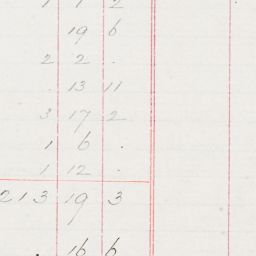 1 1 2
19 6
2 2 .
. 13 11
3 17 2
1 6 .
1 12 .
213 19 3
. 16 6